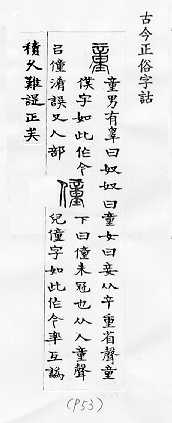 古今正俗字詁
童
童男有辠曰奴奴曰童女曰妾从䇂重省聲童
僕字如此作今
吕僮淆誤又人部
僮
下曰僮未冠也从人童聲
兒僮字如此作今率互譌
積久難諟正矣
(P53)